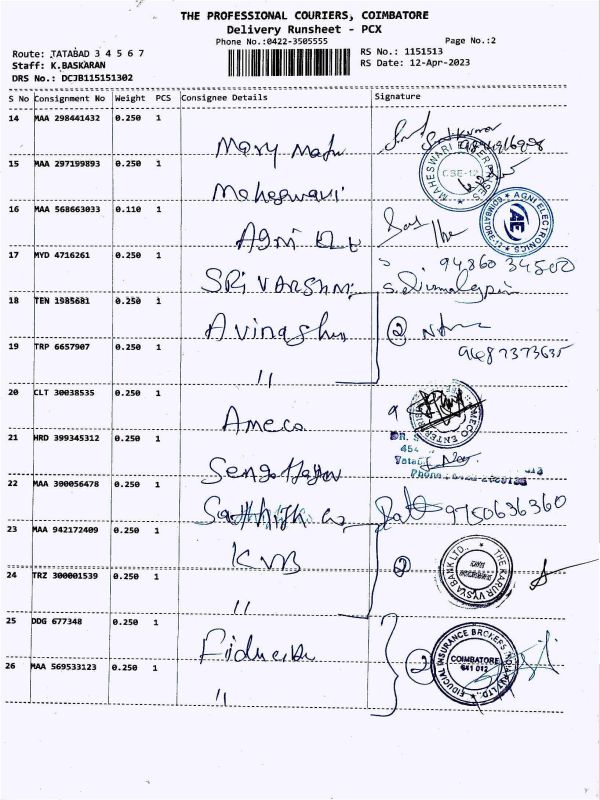 THE PROFESSIONAL COURIERS, COIMBATORE
Delivery Runsheet - PCX
Phone No.:0422-3505555 Page No.:2
Route: TATABAD 3 4 5 6 7 RS No.: 1151513
Staff: K.BASKARAN RS Date: 12-Apr-2023
DRS No.: DCJB115151302
S No Consignment No Weight PCS Consignee Details Signature
14 MAA 298441432 0.250 1 Mary
15 MAA 297199893 0.250 1 Maheswari MAHESWARI ENTERPRISES CBE-12
16 MAA 568663033 0.110 1 Agni AGNI ELECTRONICS COIMBATORE-12 AE
17 MYD 4716261 0.250 1 SRI VARSHNI 94860 34500
18 TEN 1985681 0.250 1 Avinashi 2
19 TRP 6657907 0.250 1 " 9487373635
20 CLT 30038535 0.250 1 Ameco AMECO ENTERPRISES
21 HRD 399345312 0.250 1
22 MAA 300056478 0.250 1 9750636360
23 MAA 942172409 0.250 1 KVB THE KARUR VYSYA BANK LTD.,
24 TRZ 300001539 0.250 1 " 2
25 DDG 677348 0.250 1 FIDUCIAL INSURANCE BROKERS COIMBATORE 641 012
26 MAA 569533123 0.250 1 " 2